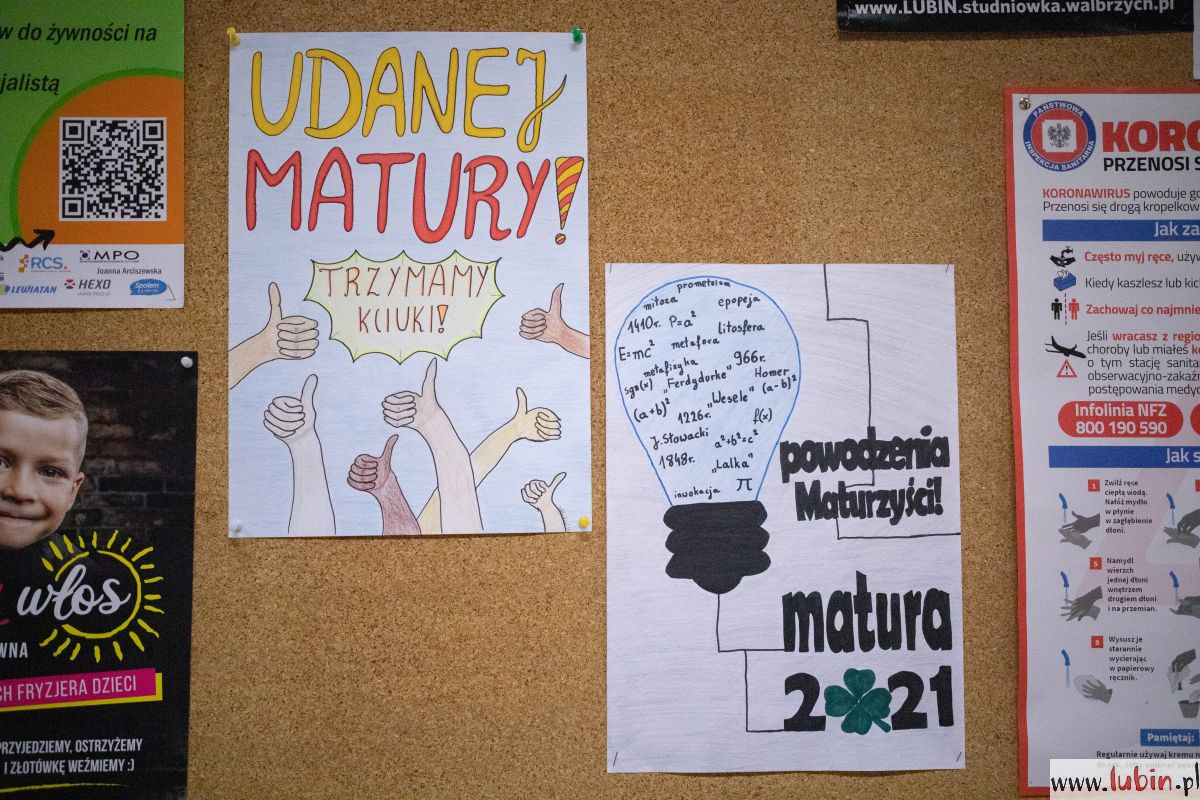 w do żywności na
jalistą
RCS.
MPO
Joanna Arciszewska
LEWIATAN
HEXO
Społem
włos
WNA
CH FRYZJERA DZIECI
PRZYJEDZIEMY, OSTRZYŻEMY
I ZŁOTÓWKĘ WEŹMIEMY :)
UDANEJ
MATURY!
TRZYMAMY
KCIUKI!
www.LUBIN.studniowka.walbrzych.pl
prometeizm
mitoza epopeja
1410r. P=a²
litosfera
E=mc² metafora
metafizyka 966r.
sgn(x) „Ferdydurke" Homer
(a+b)² „Wesele" (a-b)²
1226r. f(x)
J. Słowacki a²+b²=c²
1848r. „Lalka"
inwokacja π
powodzenia
Maturzyści!
matura
2021
PAŃSTWOWA
INSPEKCJA SANITARNA
KORO
PRZENOSI S
KORONAWIRUS powoduje go
Przenosi się drogą kropelkow
Jak za
Często myj ręce, używ
Kiedy kaszlesz lub kic
Zachowaj co najmnie
Jeśli wracasz z regio
choroby lub miałeś k
o tym stację sanita
obserwacyjno-zakaźn
postępowania medyc
Infolinia NFZ
800 190 590
Jak s
1 Zwilż ręce
ciepłą wodą.
Nałóż mydło
w płynie
w zagłębienie
dłoni.
5 Namydl
wierzch
jednej dłoni
wnętrzem
drugiem dłoni
i na przemian.
9 Wysusz je
starannie
wycierając
w papierowy
ręcznik.
Pamiętaj:
Regularnie używaj kremu n
www.lubin.pl